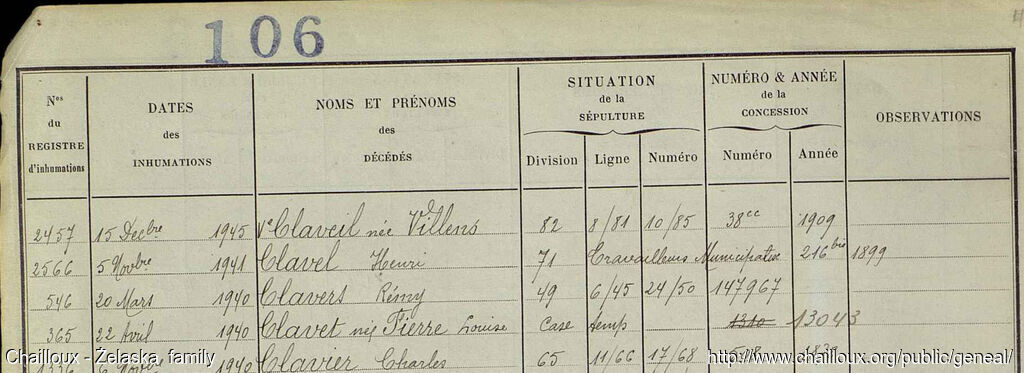 106
Nos du REGISTRE d'inhumations
DATES des INHUMATIONS
NOMS ET PRÉNOMS des DÉCÉDÉS
SITUATION de la SÉPULTURE
Division Ligne Numéro
NUMÉRO & ANNÉE de la CONCESSION
Numéro Année
OBSERVATIONS
2457 15 Decbre 1945 Ve Claveil née Villens 82 8/81 10/85 38cc 1909
2566 5 Novbre 1941 Clavel Henri 71 Travailleurs Municipaux 216 bis 1899
546 20 Mars 1940 Clavers Rémy 49 6/45 24/50 147967
365 22 Avril 1940 Clavet née Fierre Louise Case temp 1310 13043
1336 6 Novbre 1940 Clavier Charles 65 11/66 17/68
Chailloux - Żelaska, family
http://www.chailloux.org/public/geneal/